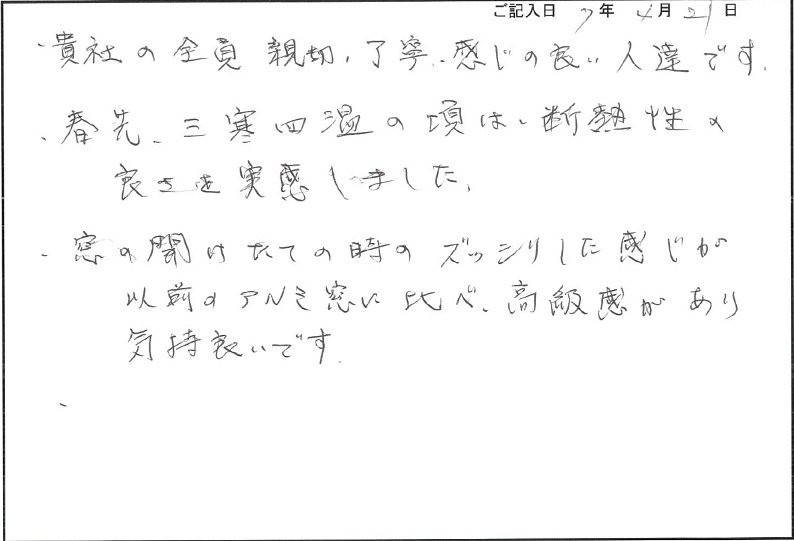 ご記入日 7年 4月 21日
・貴社の全員 親切、丁寧、感じの良い人達です。
・春先、三寒四温の頃は、断熱性の
良さを実感しました。
・窓の開けたての時のズッシリした感じが
以前のアルミ窓に比べ、高級感があり
気持良いです。
、